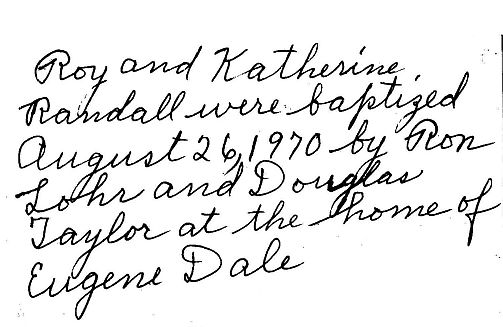 Roy and Katherine
Randall were baptized
August 26, 1970 by Ron
Lohr and Douglas
Taylor at the home of
Eugene Dale